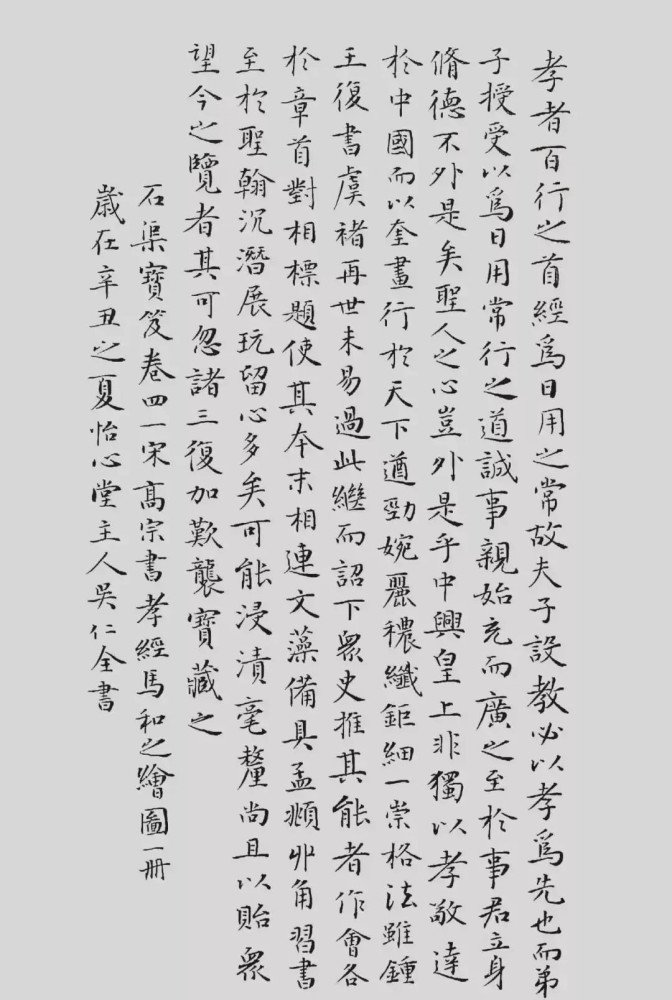 孝者百行之首經爲日用之常故夫子設教必以孝爲先也而弟
子授受以爲日用常行之道誠事親始充而廣之至於事君立身
脩德不外是矣聖人之心豈外是乎中興皇上非獨以孝敬達
於中國而以奎畫行於天下遒勁婉麗穠纖鉅細一崇格法雖鍾
王復書虞褚再世未易過此繼而詔下衆史推其能者作會各
於章首對相標題使其本末相連文藻備具孟頫丱角習書
至於聖翰沉潛展玩留心多矣可能浸漬毫釐尚且以貽衆
望今之覽者其可忽諸三復加歎襲寶藏之
石渠寶笈卷四一宋高宗書孝經馬和之繪圖一冊
歲在辛丑之夏怡心堂主人吳仁全書